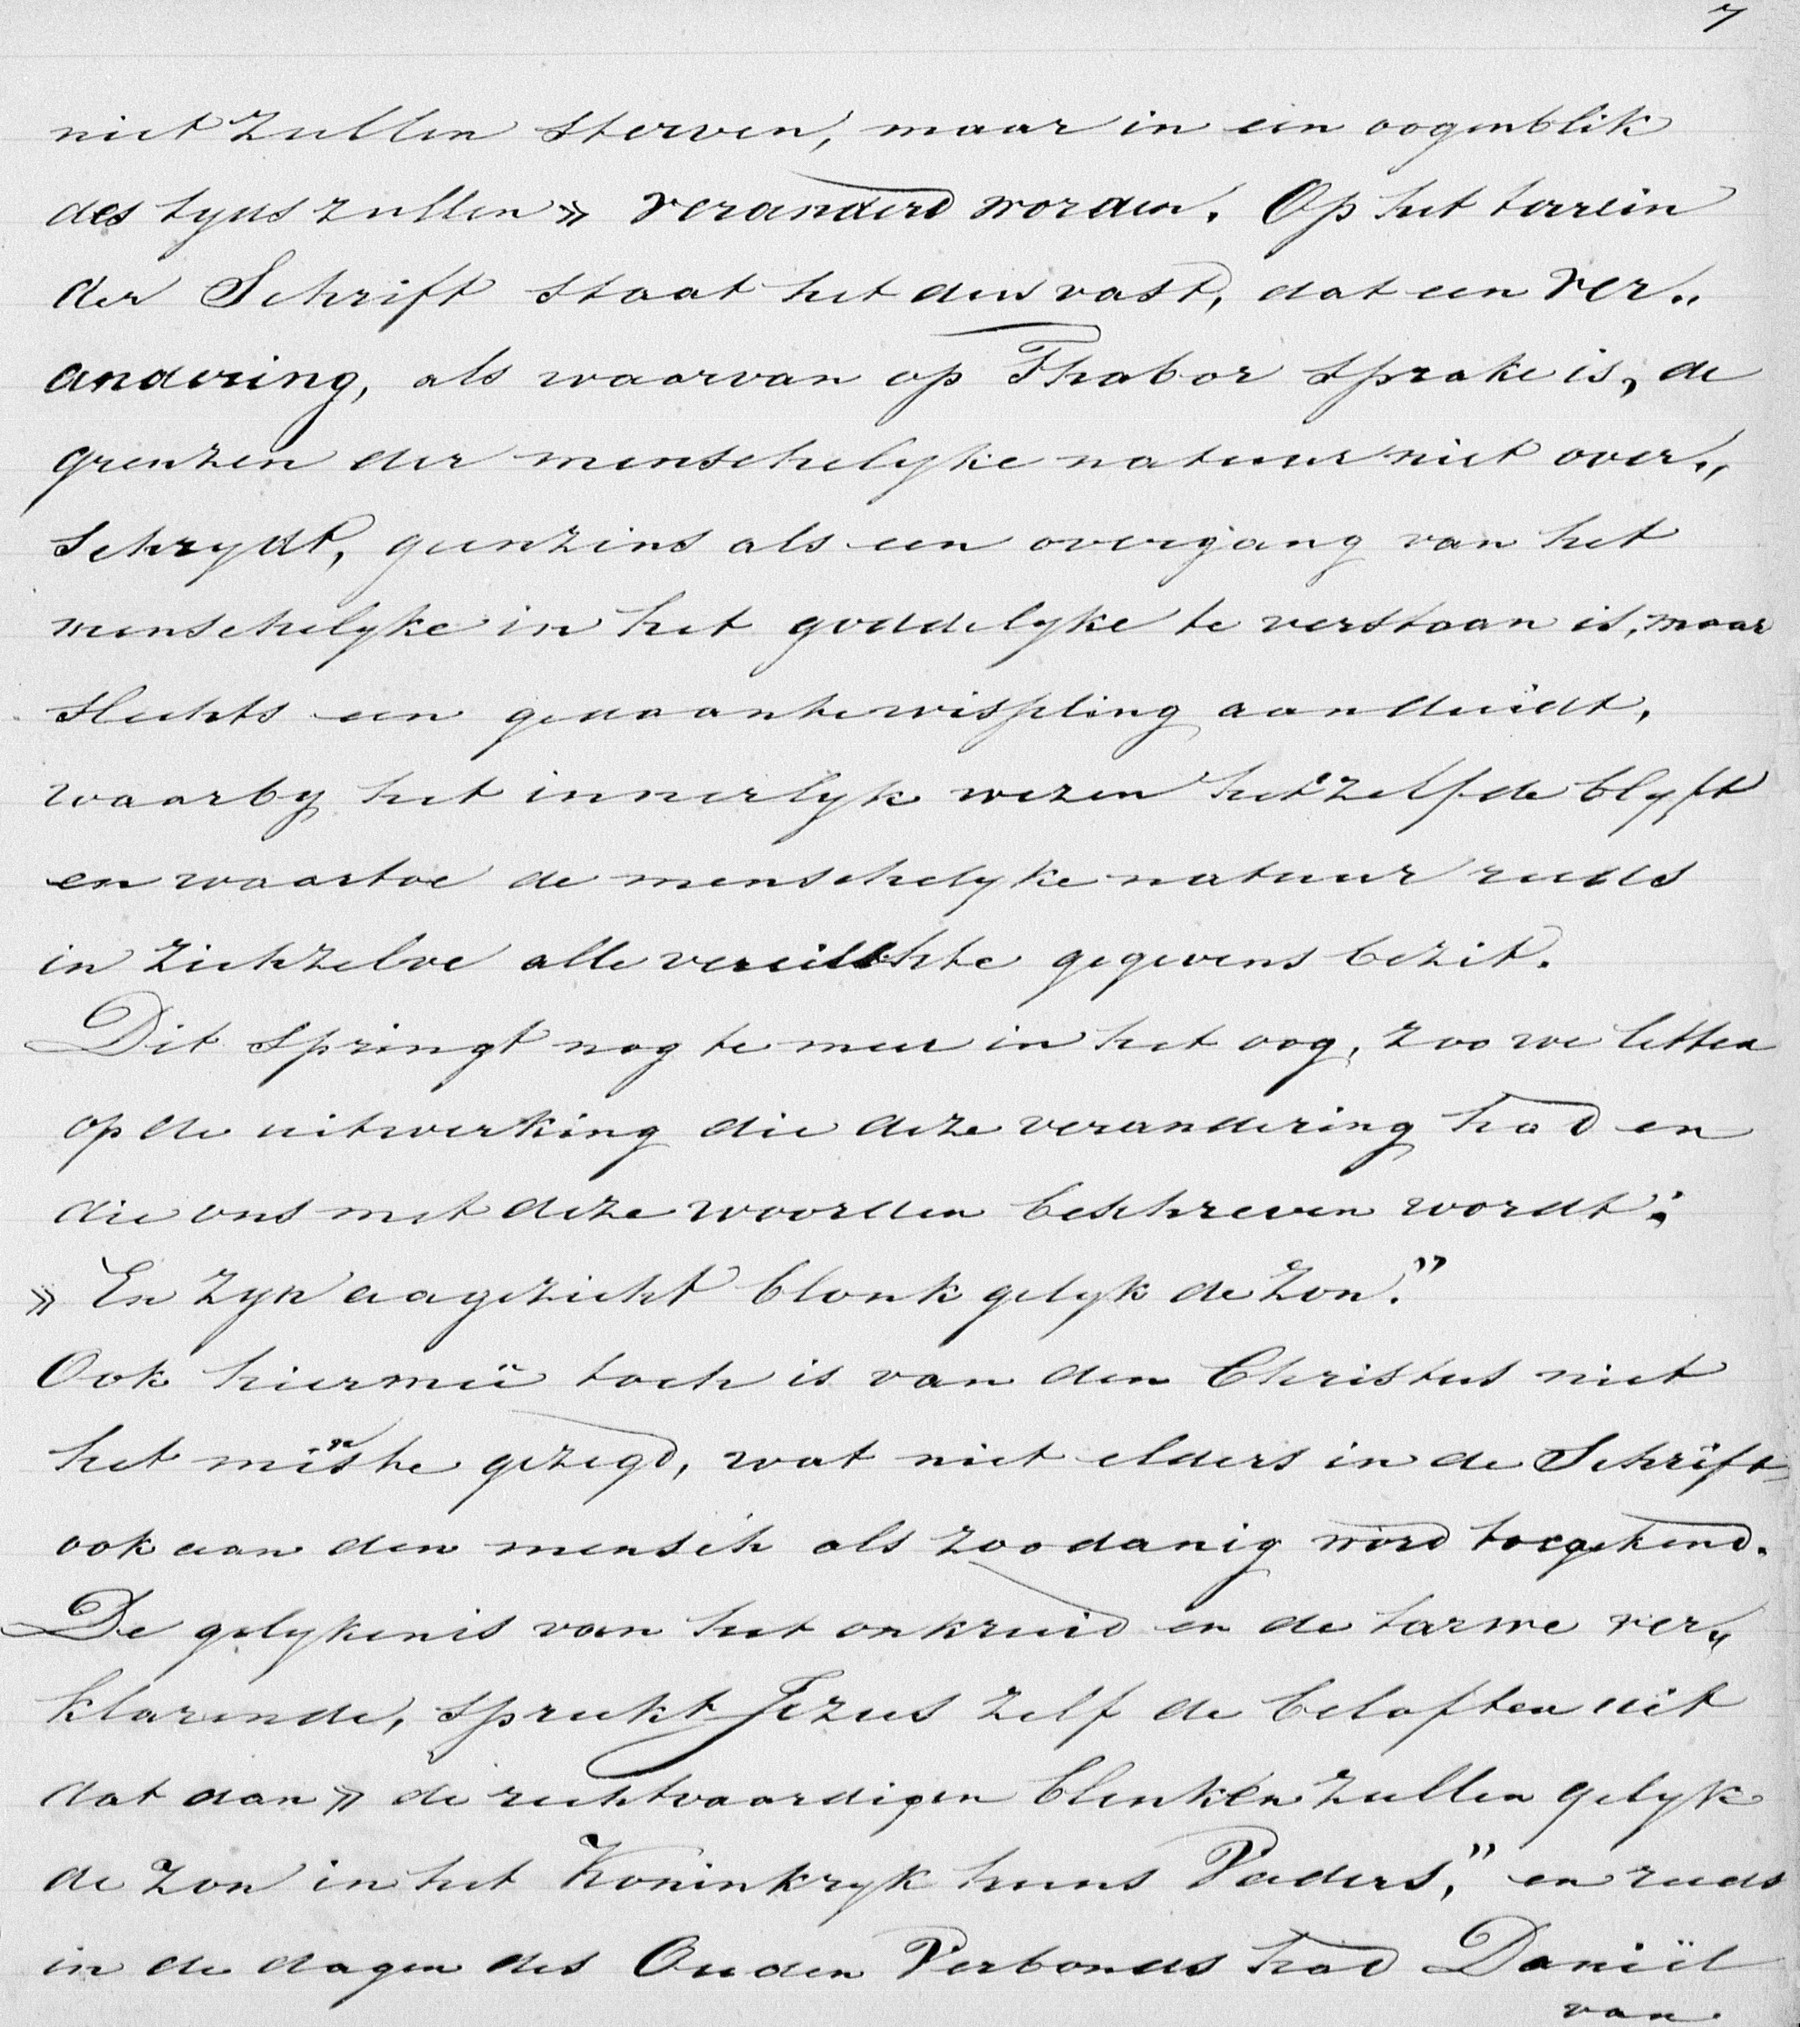 7
niet zullen sterven, maar in een oogenblik
des tyds zullen » veranderd worden. Op het terrein
der Schrift staat het dus vast, dat een ver„
andering, als waarvan op Thabor sprake is, de
grenzen der menschelyke natuur niet over„
schrydt, geenzins als een overgang van het
menschelyke in het goddelyke te verstaan is, maar
slechts een gedaantewisseling aanduidt,
waarby het innerlyk wezen hetzelfde blyft
en waartoe de menschelyke natuur reeds
in zichzelve alle vereischte gegevens bezit.
Dit springt nog te meer in het oog, zoo we letten
op de uitwerking die deze verandering had en
die ons met deze woorden beschreven wordt:
» En zyn aagezicht blonk gelyk de zon."
Ook hiermeê toch is van den Christus niet
het minste gezegd, wat niet elders in de Schrift
ook aan den mensch als zoodanig word toegekend.
De gelykenis van het onkruid en de tarwe ver„
klarende, spreekt Jezus zelf de beloften uit
dat dan » de rechtvaardigen blinken zullen gelyk
de zon in het Koninkryk huns Vaders," en reeds
in de dagen des Ouden Verbonds had Daniël
van